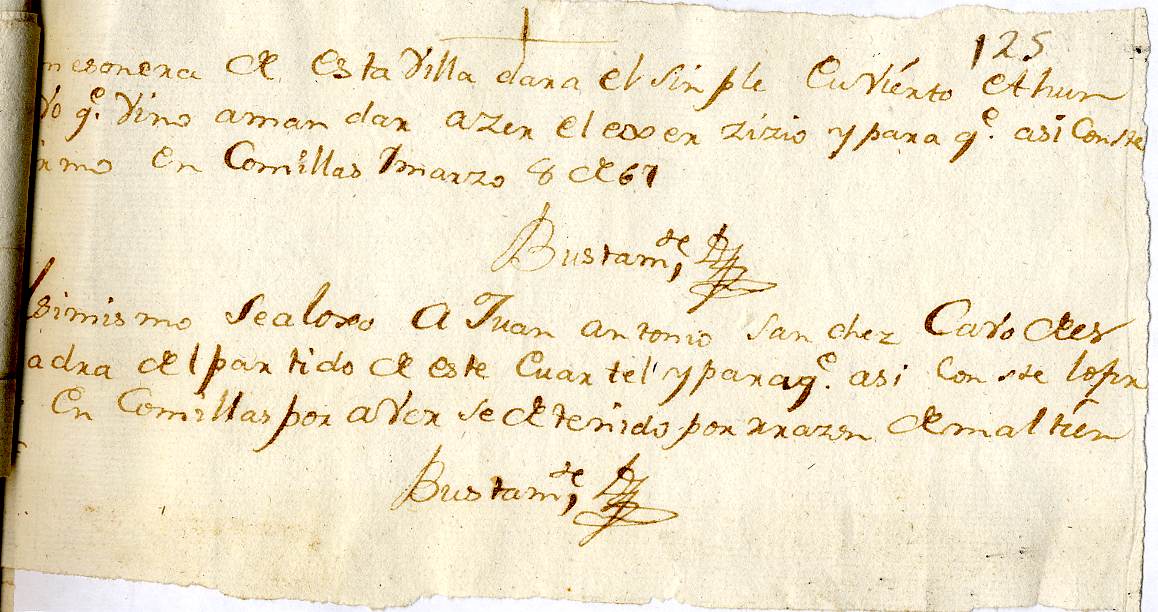 125
mesonera de esta Villa dara el sinple Cuvierto
Vo q.e Vino aman dar azer el exer zizio y para q.e asi Conste
rmo En Comillas Y marzo 8 de 67
Bustam.te
simismo Sealoxo A Juan antonio Sanchez Cavo de es
adra del partido de este Cuartel y para q.e asi Conste lo fir
En Comillas por aver se detenido por rrazon de mal tien
Bustam.te